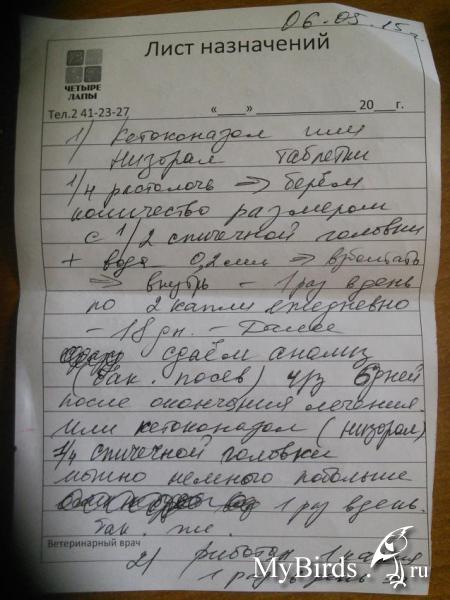 06.05.15г.
Лист назначений
ЧЕТЫРЕ
ЛАПЫ
Тел.2 41-23-27 «___» ____________ 20___г.
1) Кетоконазол или
Низорал таблетки
1/4 растолочь => берём
количество размером
с 1/2 спичечной головки
+ вода 0,2 мл => взболтать
=> внутрь - 1 раз вдень
по 2 капли ежедневно
- 18 дн. - Далее
сдаём анализ
(бак. посев) ч/з дней
после окончания лечения.
или кетоконазол (низорал)
1/4 спичечной головки
можно немного побольше
1 раз вдень.
так же.
Ветеринарный врач
2) 1 капля
1 раз
MyBirds.ru